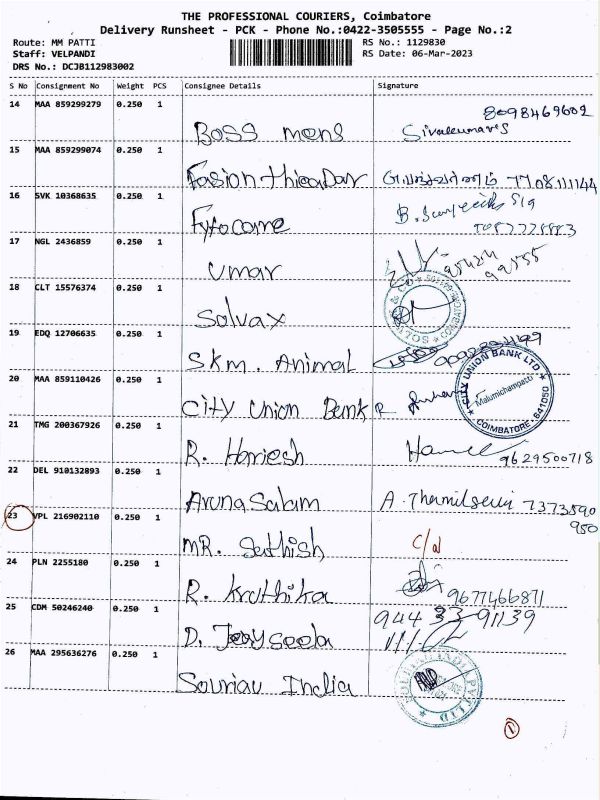 THE PROFESSIONAL COURIERS, Coimbatore
Delivery Runsheet - PCK - Phone No.:0422-3505555 - Page No.:2
Route: MM PATTI RS No.: 1129830
Staff: VELPANDI RS Date: 06-Mar-2023
DRS No.: DCJB112983002
S No Consignment No Weight PCS Consignee Details Signature
14 MAA 859299279 0.250 1
8098469602
Boss mens Sivakumar
15 MAA 859299074 0.250 1
Fasion thicaDar 7708111144
16 SVK 10368635 0.250 1
Fyfocome B.
17 NGL 2436859 0.250 1
Umar
18 CLT 15576374 0.250 1
Solvax
19 EDQ 12706635 0.250 1
SKM. Animal
20 MAA 859110426 0.250 1
City Union Bank
CITY UNION BANK LTD
Malumichampatti
COIMBATORE - 641050
21 TMG 200367926 0.250 1
R. Harriesh 9629500718
22 DEL 910132893 0.250 1
Aruna Salam A. Thamilselvi 7373890
950
23 VPL 216902110 0.250 1
MR. Sathish
24 PLN 2255180 0.250 1
R. Kruthika 9677466871
25 CDM 50246240 0.250 1
94433 91139
D. Jeayseela
26 MAA 295636276 0.250 1
Souriau India
1